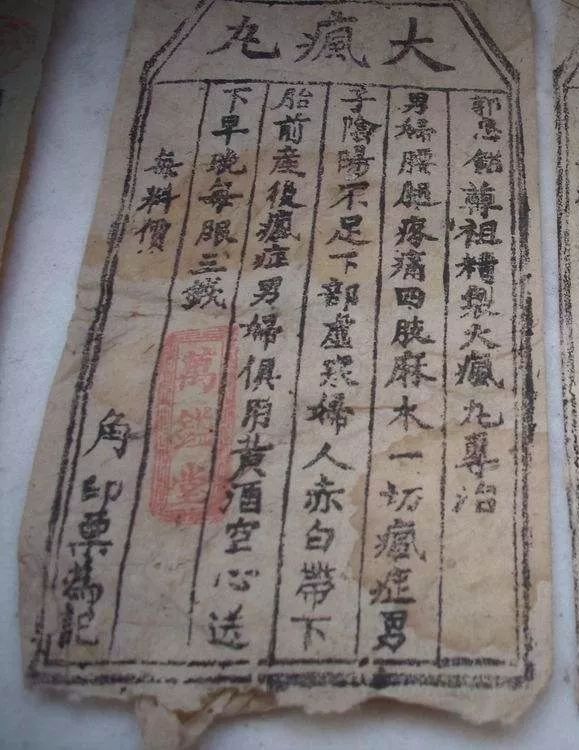 大瘋丸
郭尊祖精製大瘋丸專治
男婦腰腿疼痛四肢麻木一切瘋症男
子陰陽不足下部虛寒婦人赤白帶下
胎前產後瘋症男婦俱用黃酒空心送
下早晚每服三錢
每料價 角
印票為記
萬鎰堂